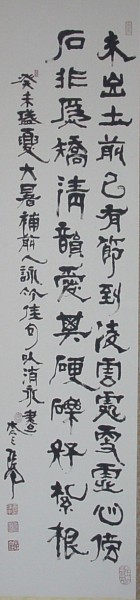 未出土前已有節到凌雲處更虛心傍
石非爲矯清韻愛其硬礫好紮根
癸未盛夏大暑補前人詠竹佳句以消永晝